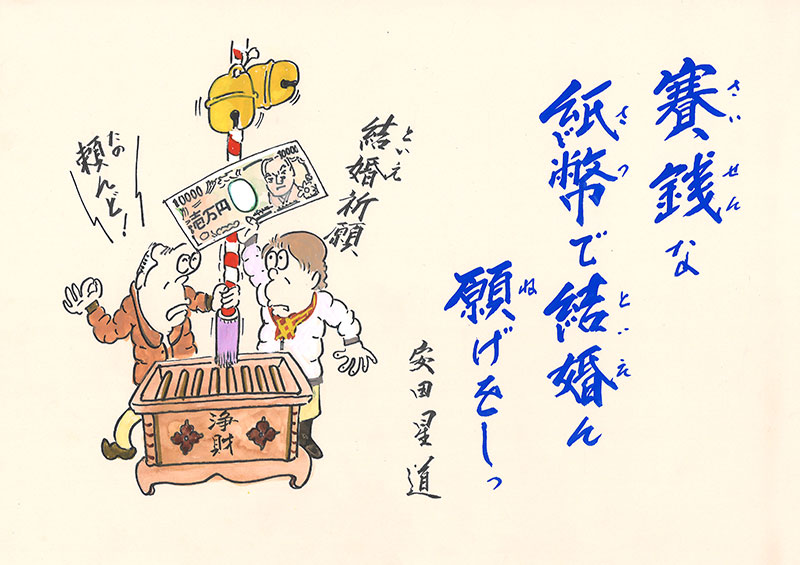 さいせん
賽銭な
さつ といえ
紙幣で結婚ん
ね
願げをしっ
安田星道
といえ
結婚祈願
たの
頼んど!
10000
10000
壱万円
浄財